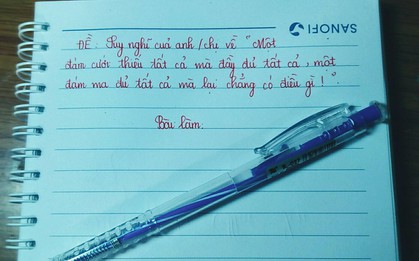 SANOFI
ĐỀ: Suy nghĩ của anh/chị về "Một
đám cưới thiếu tất cả mà đầy đủ tất cả, một
đám ma đủ tất cả mà lại chẳng có điều gì!".
Bài làm.